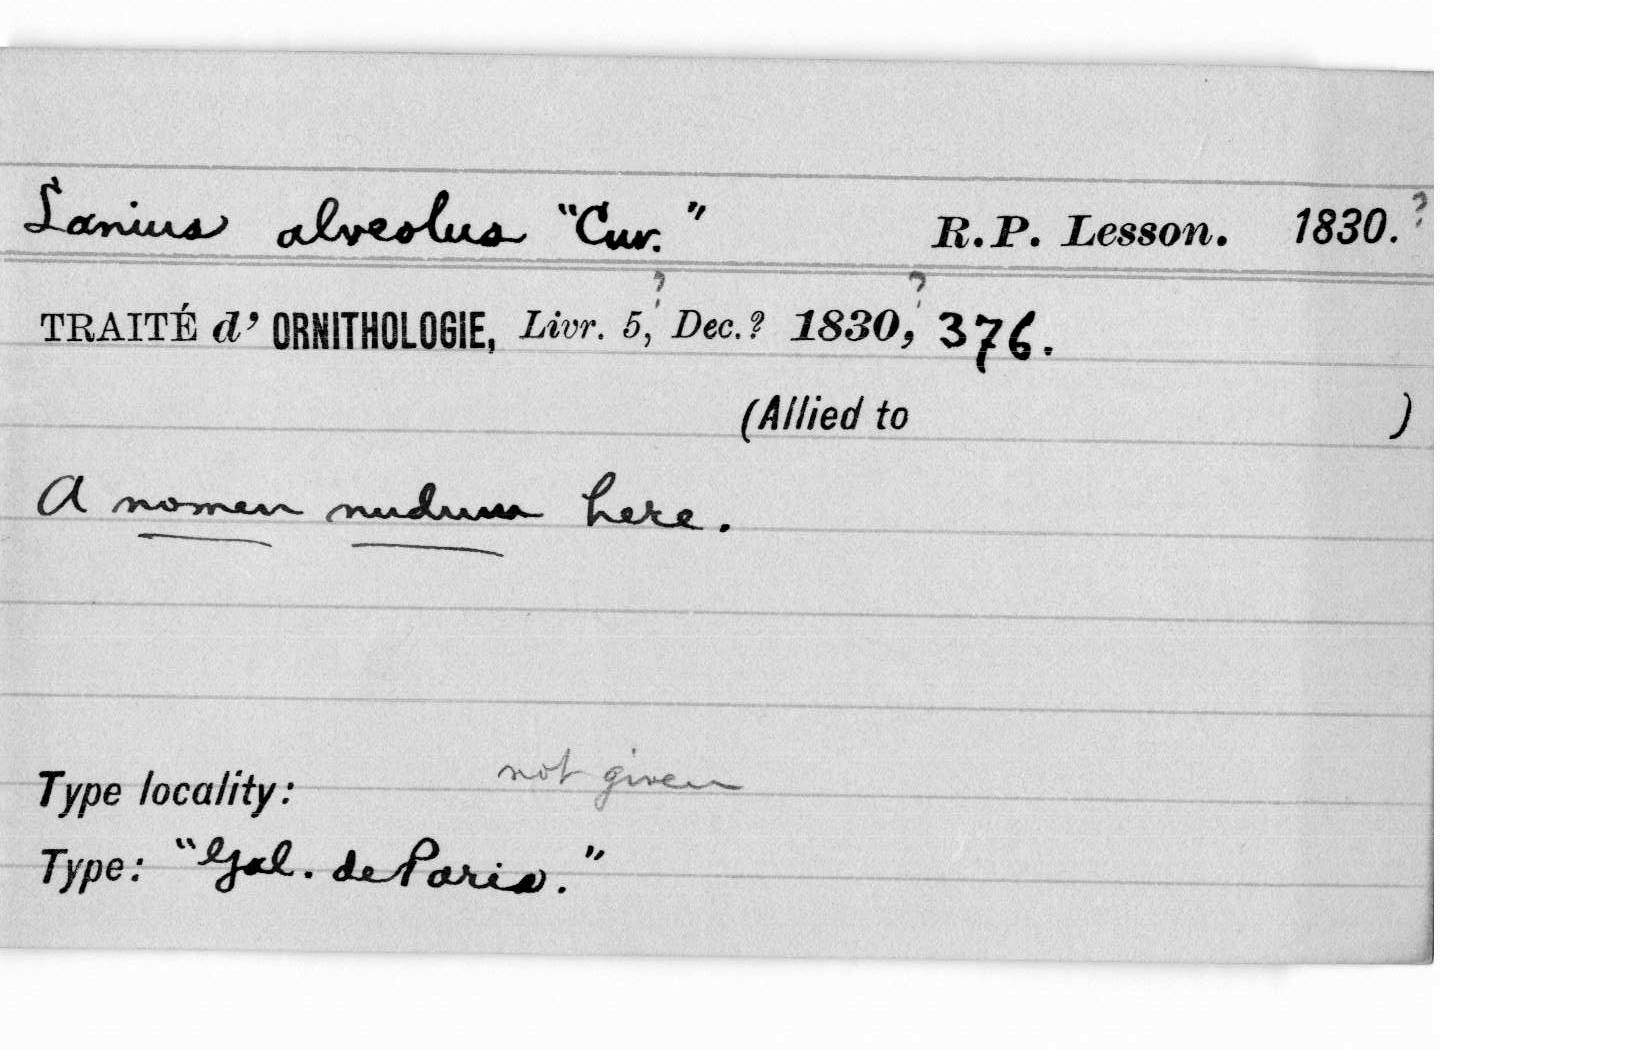 Lanius alveolus "Cuv." R.P. Lesson. 1830.?
TRAITÉ d' ORNITHOLOGIE, Livr. 5,? Dec.? 1830,? 376.
(Allied to )
A nomen nudum here.
Type locality: not given
Type: "Gal. de Paris."